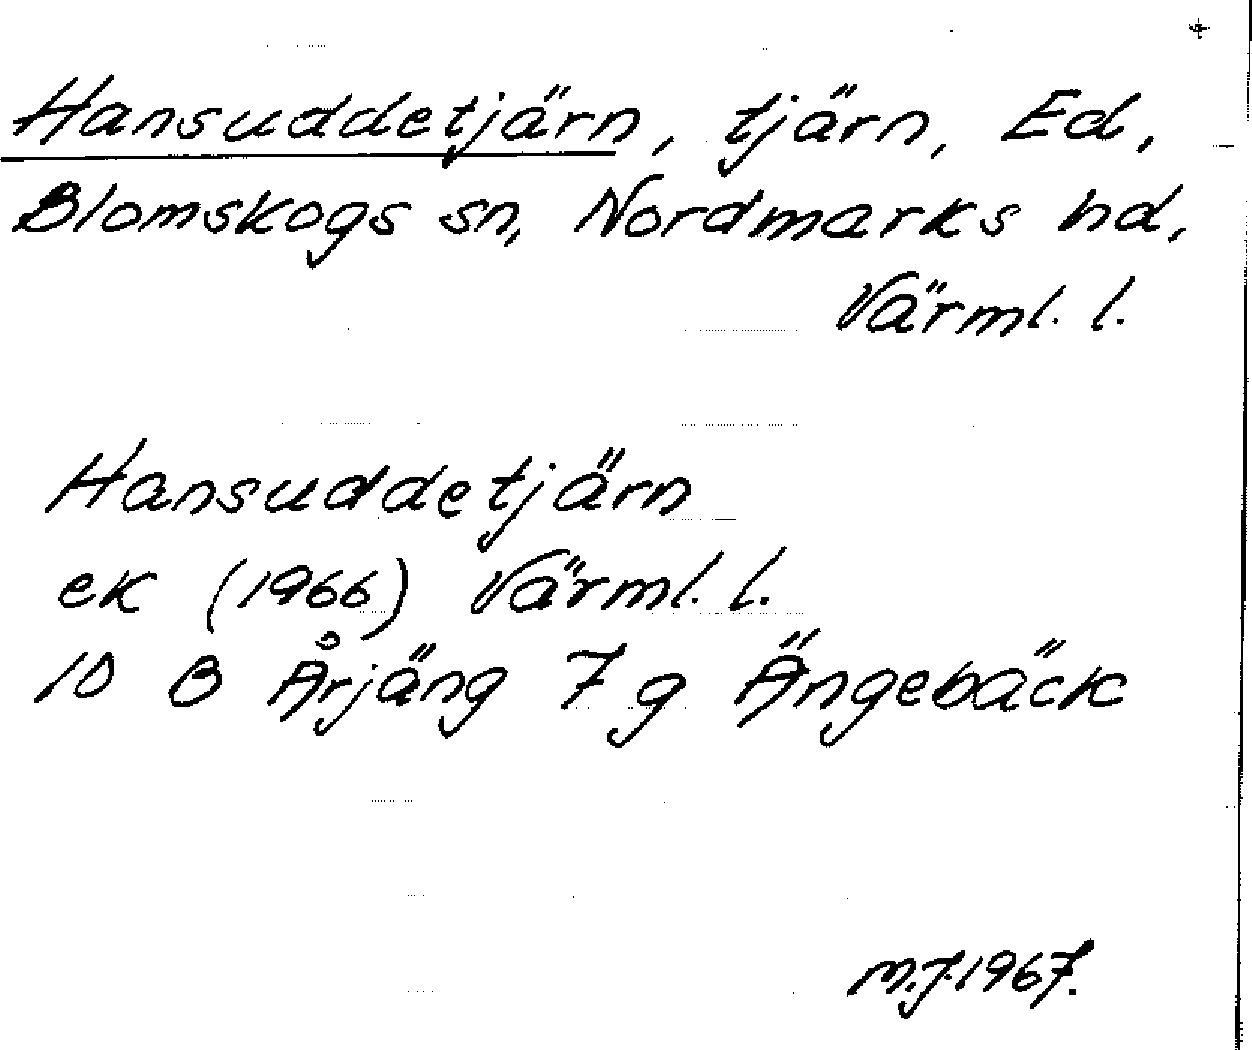 Hansuddetjärn, tjärn, Ed,
Blomskogs sn, Nordmarks hd,
Värml. l.
Hansuddetjärn
ek (1966) Värml. l.
10 B Årjäng 7 g Ängebäck
M.J. 1967.